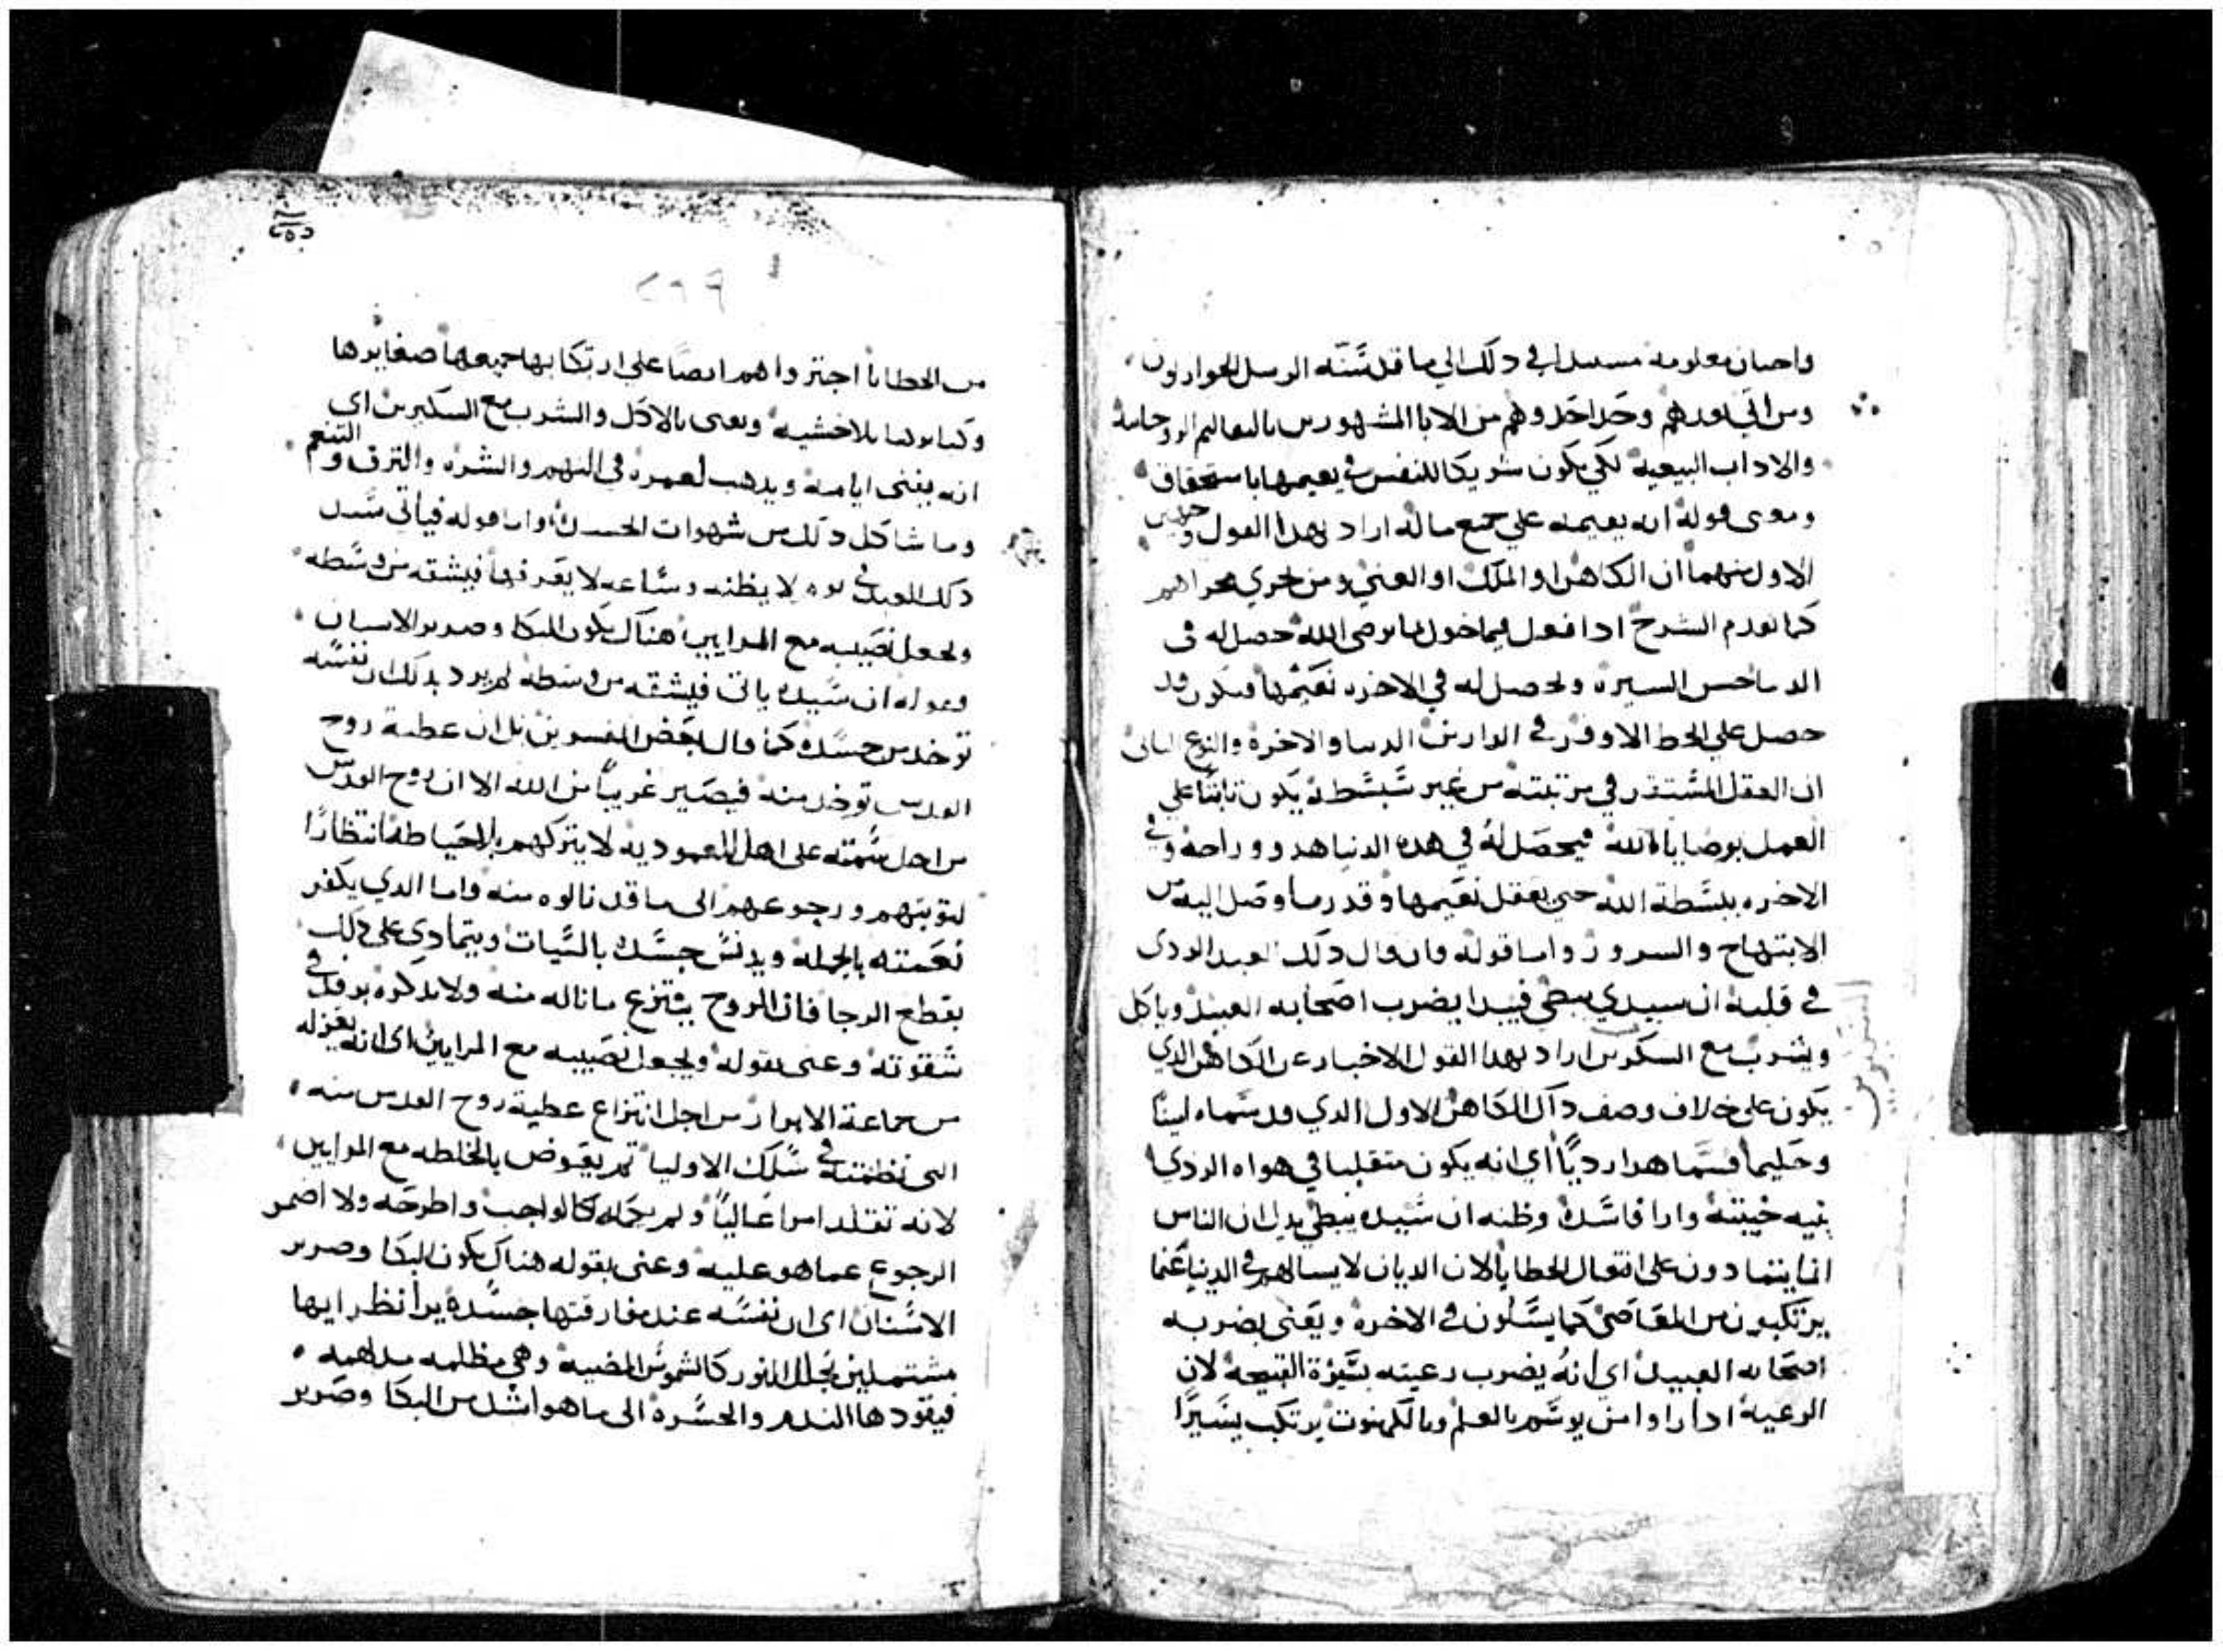 واحيان معلومه مستندا في دلك الي ما قد سنه الرسل الحواريون
ومن اتي بعدهم وحدا حدوهم من الابا المشهورين بالتعاليم الروحانية
والاداب البيعية لكي يكون شريكا للنفس في نعيمها باستحقاق
ومعنى قوله انه يقيمه علي جميع ماله اراد بهدا القول و
الاول منهما ان الكاهن او الملك او الغني ومن جري مجراهم
كما تقدم الشرح ادا فعل فيما خول ما يرضي الله حصل له في
الدنيا حسن السيرة ويحصل له في الاخره نعيمها فيكون قد
حصل علي الحظ الاوفر في الدارين الدنيا والاخرة والنوع الثاني
ان العقل المستقر في مرتبته من غير يكون ثابتا علي
العمل بوصايا الله فيحصل له في هده الدنيا هدوو راحة وفي
الاخره الله حتي يعقل نعيمها وقدر ما وصل اليه من
الابتهاج والسرور واما قوله فان قال دلك العبد الردى
في قلبه ان سيدي يبطي فيبدا يضرب اصحابه العبيد وياكل
ويشرب مع السكيرين اراد بهدا القول الاخبار عن الكاهن الدي
يكون علي خلاف وصف داك الكاهن الاول الدي قد سماه لينا
وحليما فسما هدا رديا اي انه يكون متقلبا في هواه الردي
بنيه خبيثة وارا فاسدة وظنه ان سيده يبطي يدل ان الناس
انما يتمادون على افتعال الخطايا لان الديان لا يسالهم في الدنيا عما
يرتكبون من المعاصي كما يسالون في الاخرة ويعني بضربه
اصحابه العبيد اي انه يضرب رعيته بسيرة القبيحة لان
الرعية ادا راوا من يوسم بالعلم وبالكهنوت يرتكب يسيرا
٢٦٩
من الخطايا اجتروا هم ايضا علي ارتكابها جميعها صغايرها
وكبايرها بلا خشية ويعني بالاكل والشرب مع السكيرين اي
انه يفني ايامه ويدهب لعمره في النهم والشره والترف والتنعم
وما شاكل دلك من شهوات الجسد واما قوله فياتي سيد
دلك العبد في يوم لا يظنه وساعه لا يعرفها فيشقه من وسطه
ويجعل نصيبه مع المرايين هناك يكون البكا وصرير الاسنان
وقوله ان سيده ياتي فيشقه من وسطه لم يرد بدلك ان نفسه
توخد من جسده كما قال بعض المفسرين بل ان عطية روح
القدس توخد منه فيصير غريبا من الله الا ان روح القدس
من اجل سمته علي اهل المعموديه لا يتركهم بالاحياطة انتظارا
لتوبتهم ورجوعهم الى ما قد نالوه منه واما الدي يكفر
نعمته بالجملة ويدنس جسده بالسيات ويتمادي علي دلك
بقطع الرجا فان الروح ينتزع ما ناله منه ولا يدكره برفق في
شقوته وعنى بقوله ويجعل نصيبه مع المرايين اى انه يعزله
من جماعة الابرار من اجل انتزاع عطية روح القدس منه
التي نظمته في سلك الاوليا ثم يعوض بالخلطه مع المرايين
لانه تقلد امرا عاليا ولم يكمله كالواجب واطرحه ولا اضمر
الرجوع عما هو عليه وعنى بقوله هناك يكون البكا وصرير
الاسنان اى ان نفسه عند مفارقتها جسده يرا نظرايها
مشتملين بحلل النور كالشموس المضيه وهي مظلمه مدلهمه
فيقودها الندم والحسرة الى ما هو اشد من البكا وصرير